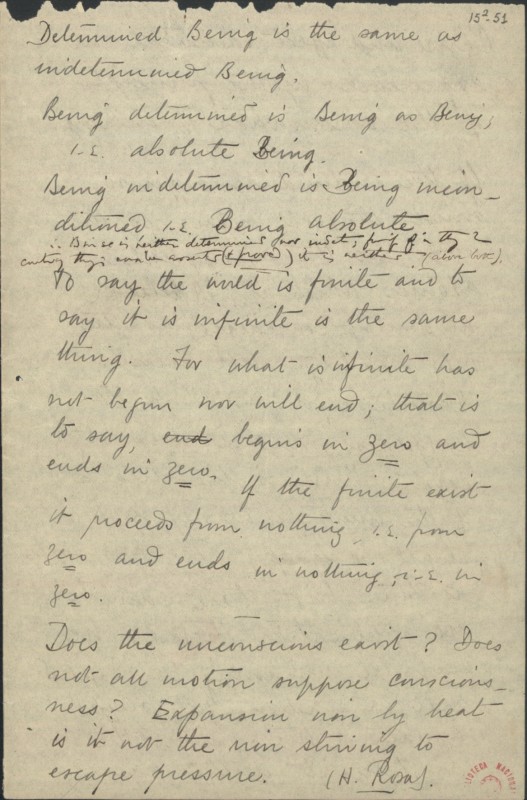 15²-51
Determined Being is the same as
indetermined Being.
Being determined is Being as Being,
i.e. absolute Being.
Being indetermined is Being incon-
ditioned i.e. Being absolute
∴ Being is neither determined nor indet; for if
contrary things can be asserted (& proved) it is neither (above both).
To say the world is finite and to
say it is infinite is the same
thing. For what is infinite has
not begun nor will end; that is
to say, end begins in zero and
ends in zero. If the finite exist
it proceeds from nothing, i.e. from
zero and ends in nothing, i.e. in
zero.
Does the unconscious exist? Does
not all motion suppose conscious-
ness? Expansion iron by heat
is it not the iron striving to
escape pressure. (H. Rosa).